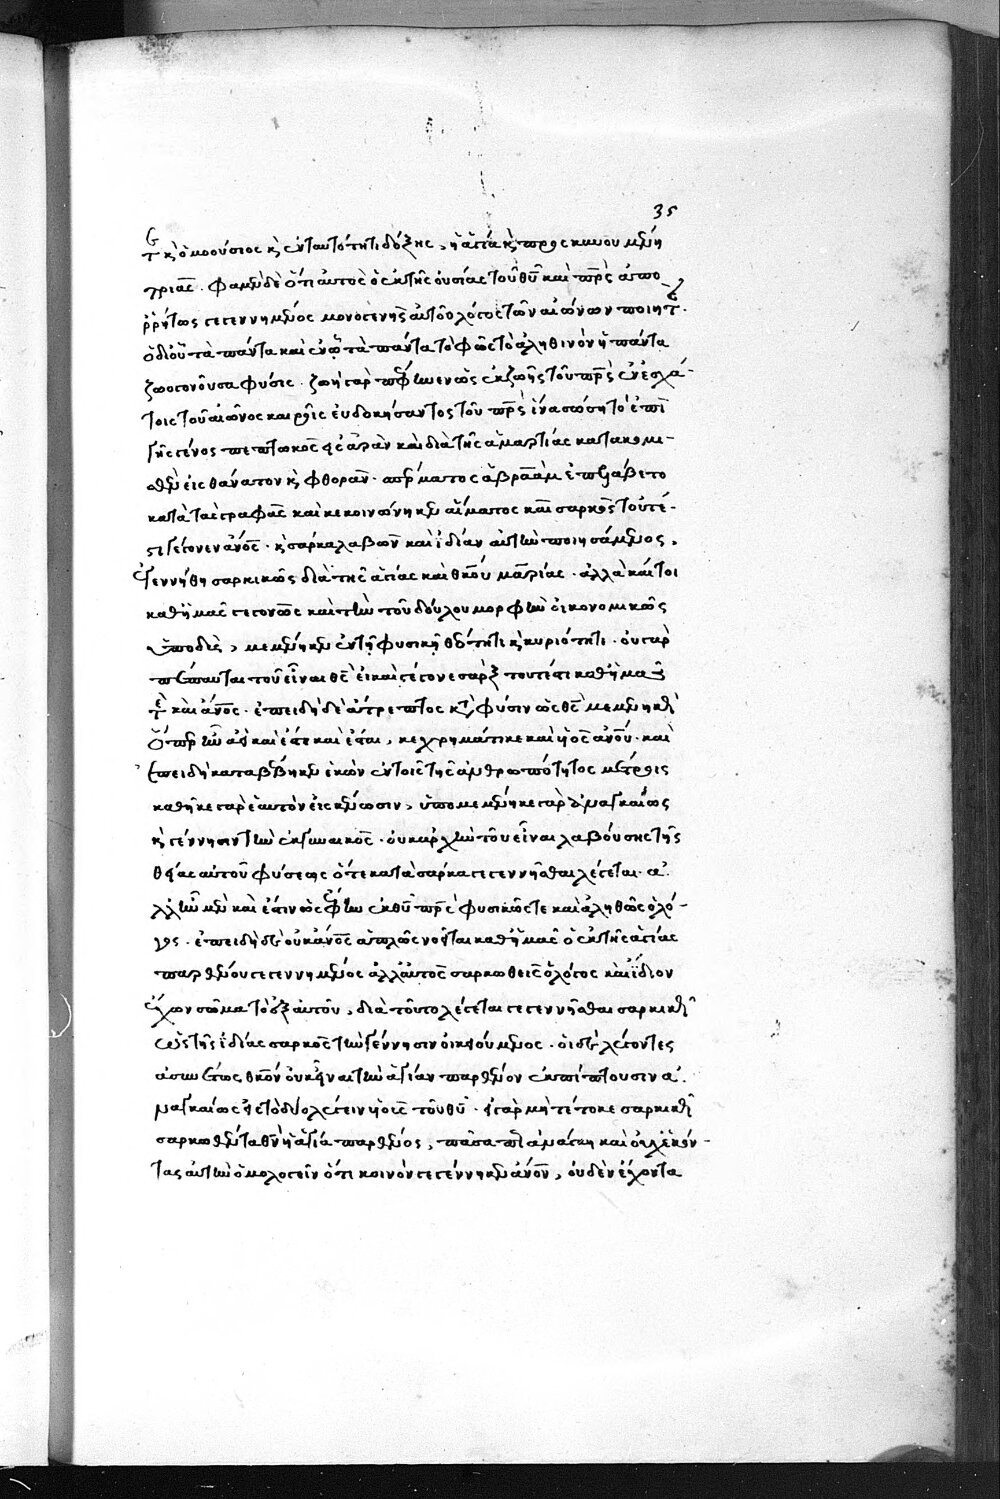 35
τε κ(αὶ) ὁμοούσιος κ(αὶ) ἐν ταυτότητι δόξης, ἡ ἁγία κ(αὶ) προσκυνουμένη
τριάς. φαμὲν δὲ ὅτι αὐτὸς ὁ ἐκ τῆς οὐσίας τοῦ θυ καὶ πρς ἀπο-
ρρήτως γεγεννημένος μονογενὴς αὐτοῦ λόγος τῶν αἰώνων ποιητ.
ὁ δι οὗ τὰ πάντα καὶ ἐν ᾧ τὰ πάντα τὸ φῶς τὸ ἀληθινὸν ἡ πάντα
ζωογονοῦσα φύσις. ζωὴ γὰρ πέφηνεν ὡς ἐκ ζωῆς τοῦ πρς ἐν ἐσχά-
τοις τοῦ αἰῶνος καιροῖς εὐδοκήσαντος τοῦ πρς ἵνα σώσῃ τὸ ἐπὶ
γῆς γένος πεπτωκὸς εἰς ἀρὰν καὶ διὰ τῆς ἁμαρτίας κατακομι-
σθὲν εἰς θάνατον κ(αὶ) φθορὰν. σπέρματος ἀβραὰμ ἐπελάβετο
κατὰ τὰς γραφὰς καὶ κεκοινώνηκεν αἵματος καὶ σαρκὸς τουτέ-
στι γέγονεν ἀνος. κ(αὶ) σάρκα λαβὼν καὶ ἰδίαν αὐτὴν ποιησάμενος,
ἐγεννήθη σαρκικῶς διὰ τῆς ἁγίας καὶ θκου μαρίας. ἀλλὰ καίτοι
καθ ἡμᾶς γεγονὼς καὶ τὴν τοῦ δούλου μορφὴν οἰκονομικῶς
ὑποδὺς, μεμένηκεν ἐν τῇ φυσικῇ θεότητι κ(αὶ) κυριότητι. οὐ γὰρ
πέπαυται τοῦ εἶναι θς εἰ καὶ γέγονε σὰρξ τουτέστι καθ ἡμᾶς
τε καὶ ἀνος. ἐπειδὴ δὲ ἄτρεπτος κατὰ φύσιν ὡς θς μεμένηκεν
ὅπερ ἦν ἀεὶ καὶ ἔστι καὶ ἔσται, κεχρημάτικε καὶ υἱὸς ἀνου. καὶ
ἐπειδὴ καταβέβηκεν ἑκὼν ἐν τοῖς τῆς ἀνθρωπότητος μέτροις
καθῆκε γὰρ ἑαυτὸν εἰς κένωσιν, ὑπομεμένηκε γὰρ ἀναγκαίως
κ(αὶ) γέννησιν τὴν ἐκ γυναικός. οὐκ ἀρχὴν τοῦ εἶναι λαβούσης τῆς
θείας αὐτοῦ φύσεως ὅτε κατὰ σάρκα γεγεννῆσθαι λέγεται. ἀ.
λλ ἦν μὲν καὶ ἔστιν ὡς ἔφην ἐκ θυ πρς φυσικῶς τε καὶ ἀληθῶς ὁ λό-
γος. ἐπειδὴ δὲ οὐκ ἀνος ἁπλῶς νοεῖται καθ ἡμᾶς ὁ ἐκ τῆς ἁγίας
παρθένου γεγεννημένος ἀλλ αὐτὸς σαρκωθεὶς ὁ λόγος καὶ ἴδιον
ἔχων σῶμα τὸ ἐξ αὐτοῦ, διὰ τοῦτο λέγεται γεγεννῆσθαι σαρκικῶς
ὡς τῆς ἰδίας σαρκὸς τὴν γέννησιν οἰκειούμενος. οἱ δὲ λέγοντες
ἀσυνέτως θκον οὐκ εἶναι τὴν ἁγίαν παρθένον ἐκπίπτουσιν ἀ.
ναγκαίως εἰς τὸ δύο λέγειν υἱοὺς τοῦ θυ. εἰ γὰρ μὴ τέτοκε σαρκικῶς
σαρκωθέντα θν ἡ ἁγία παρθένος, πᾶσα πως ἀνάγκη καὶ οὐχ ἑκόν-
τας αὐτὴν ὁμολογεῖν ὅτι κοινὸν γεγέννηκεν ἀνον, οὐδὲν ἔχοντα